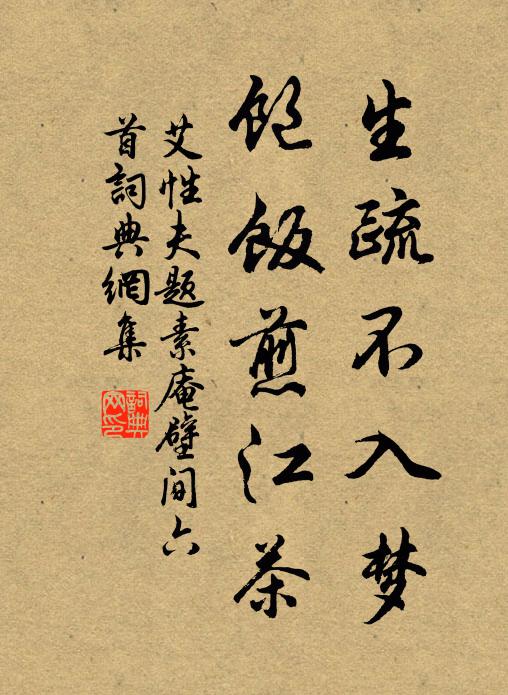 生疏不入梦
饱饭煎江茶
艾性夫题素庵壁间六
首词典網集
詞典网印